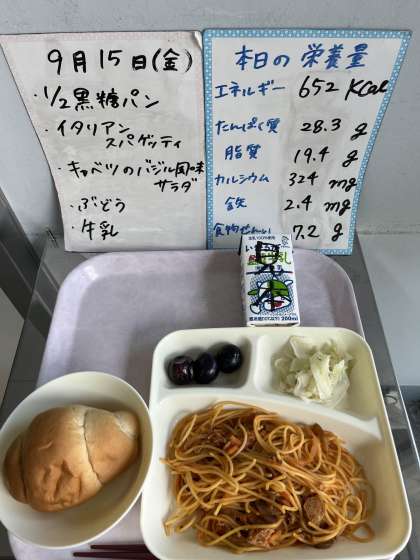 9月15日(金)
・1/2黒糖パン
・イタリアン
スパゲッティ
・キャベツのバジル風味
サラダ
・ぶどう
・牛乳
本日の栄養量
エネルギー 652 Kcal
たんぱく質 28.3 g
脂質 19.4 g
カルシウム 324 mg
鉄 2.4 mg
食物せんい 7.2 g
200ml